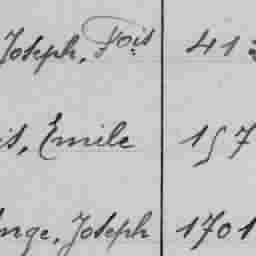 Joseph, Fois 412
is, Emile 157
Ange, Joseph 1701